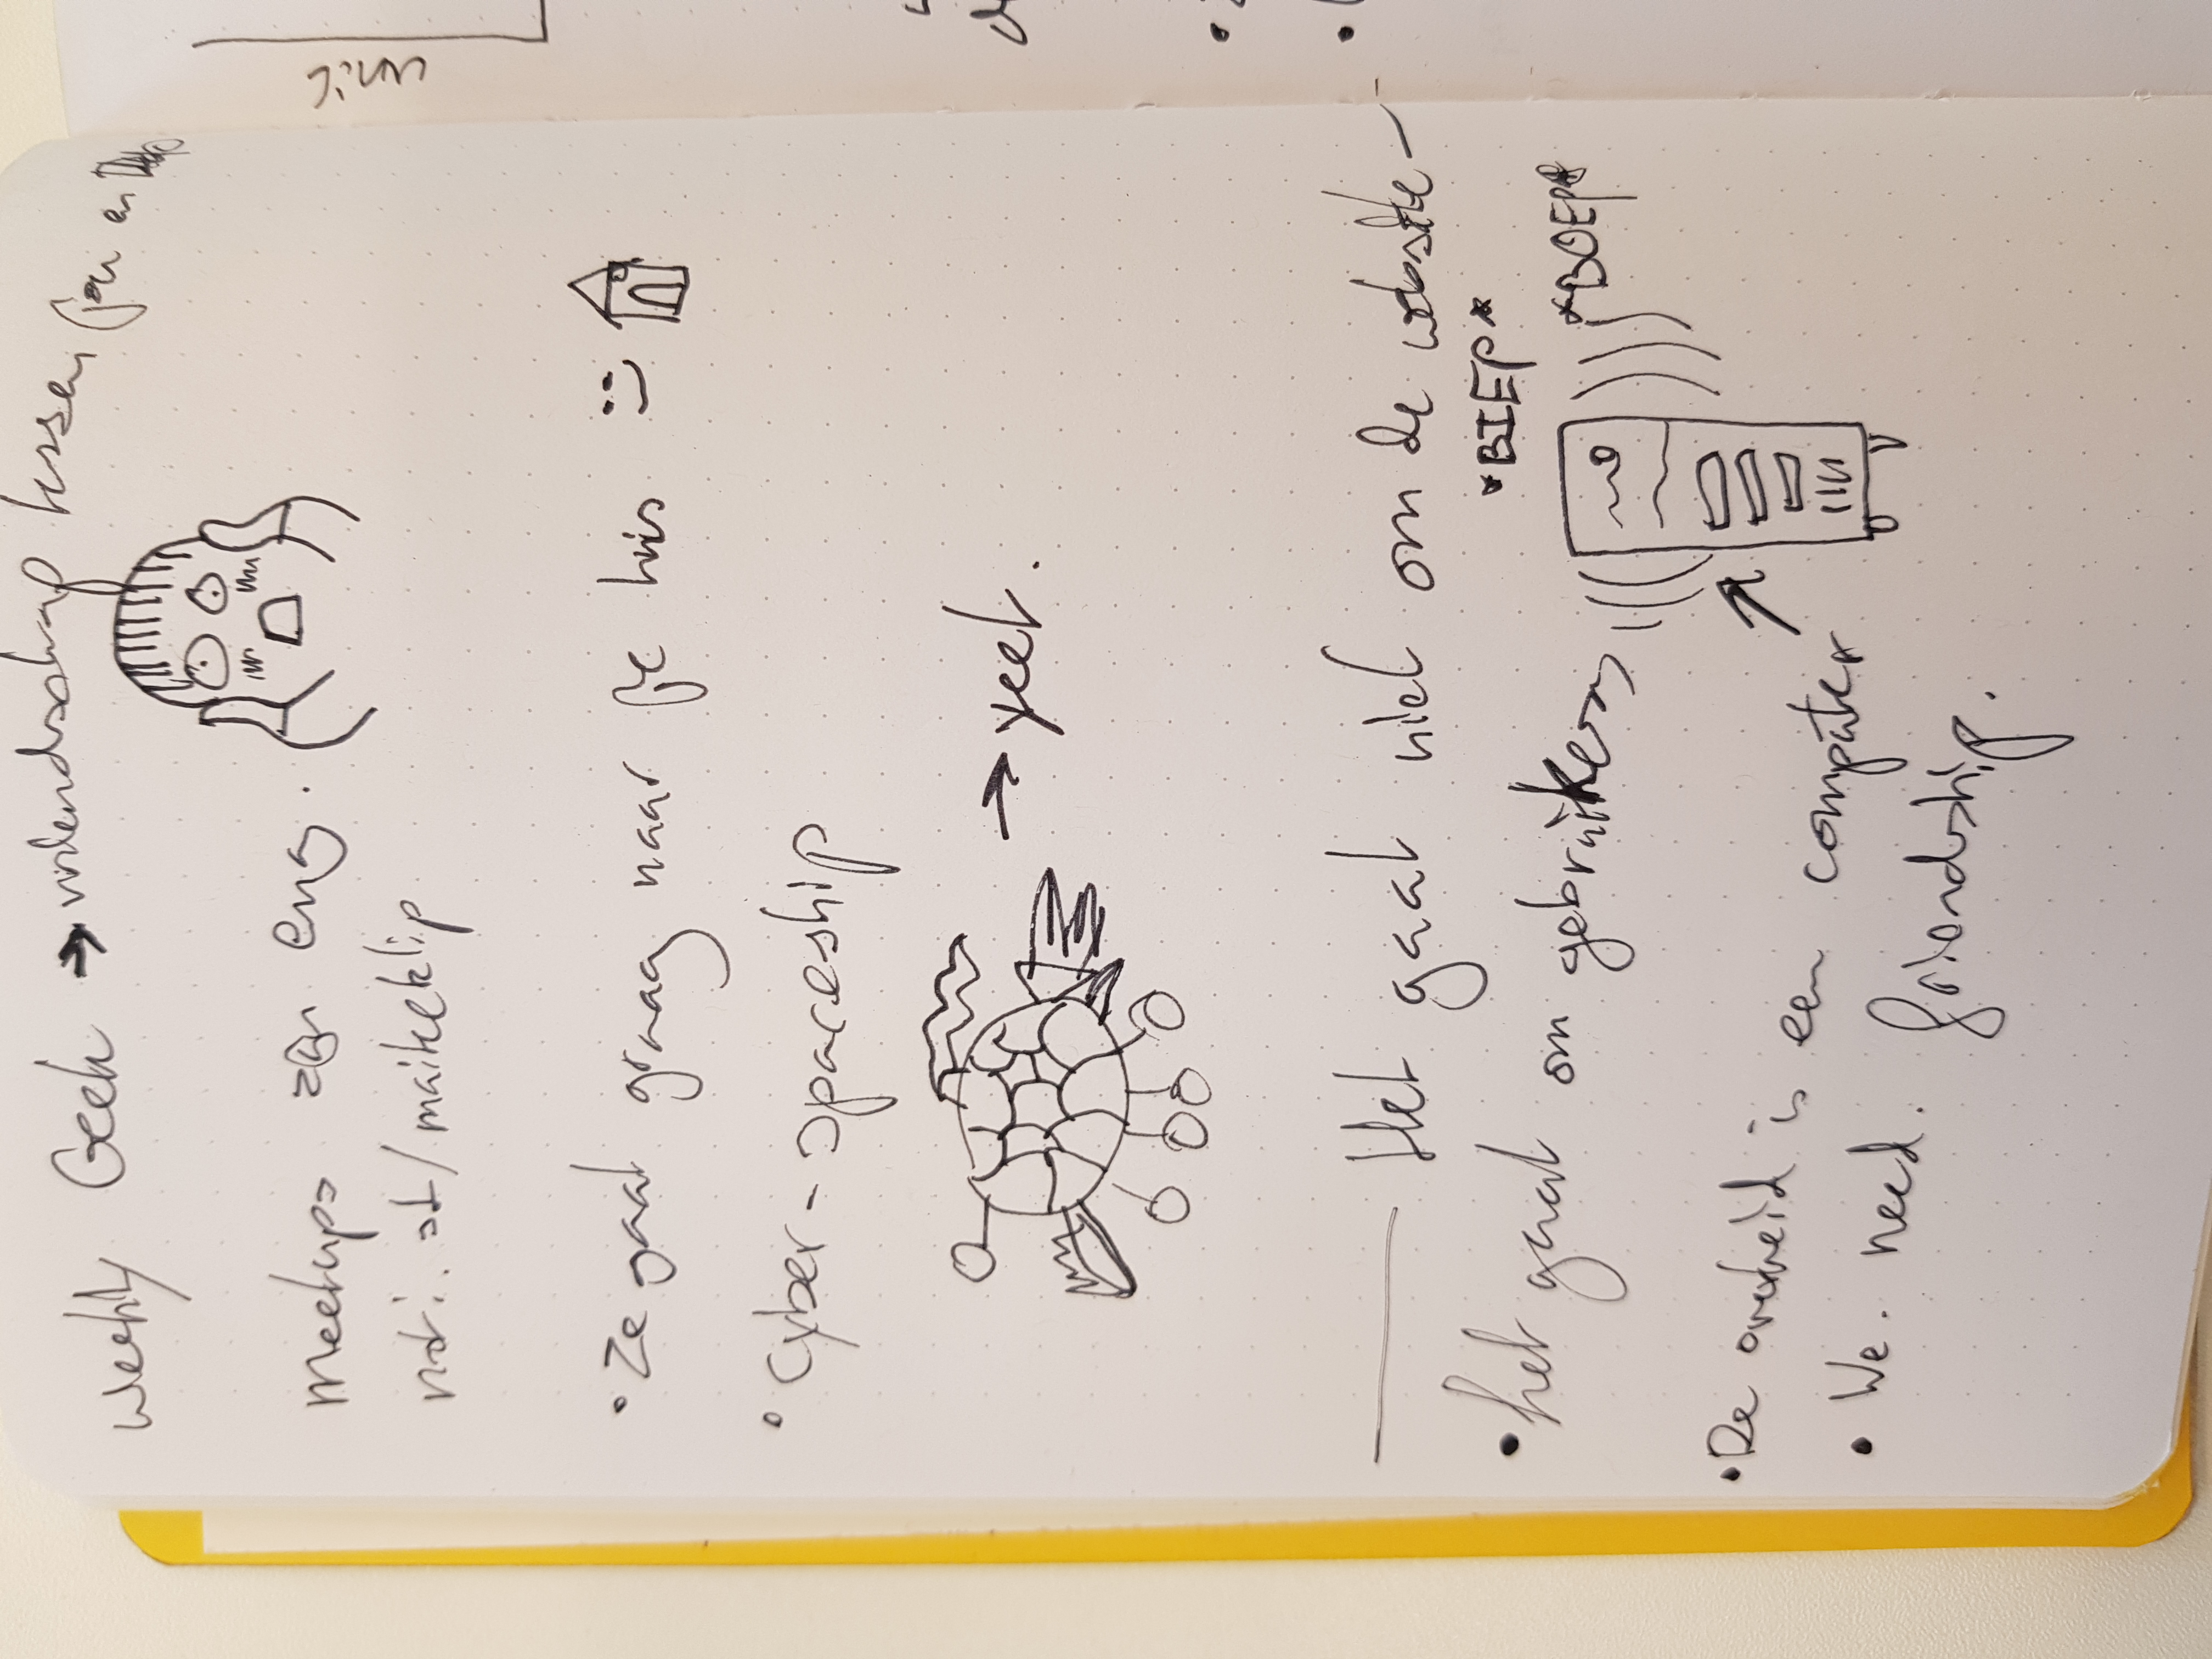 Weekly Geek → vriendschap tussen jou en
meetups zijn eng.
noti.st/maikeklip
• Ze gaat graag naar je huis :)
• Cyber-spaceship
→ yeet.
Het gaat niet om de website
• het gaat om gebruikers
*BIEP*
*BOEP*
• De overheid is een computer
• We. need. friendship.